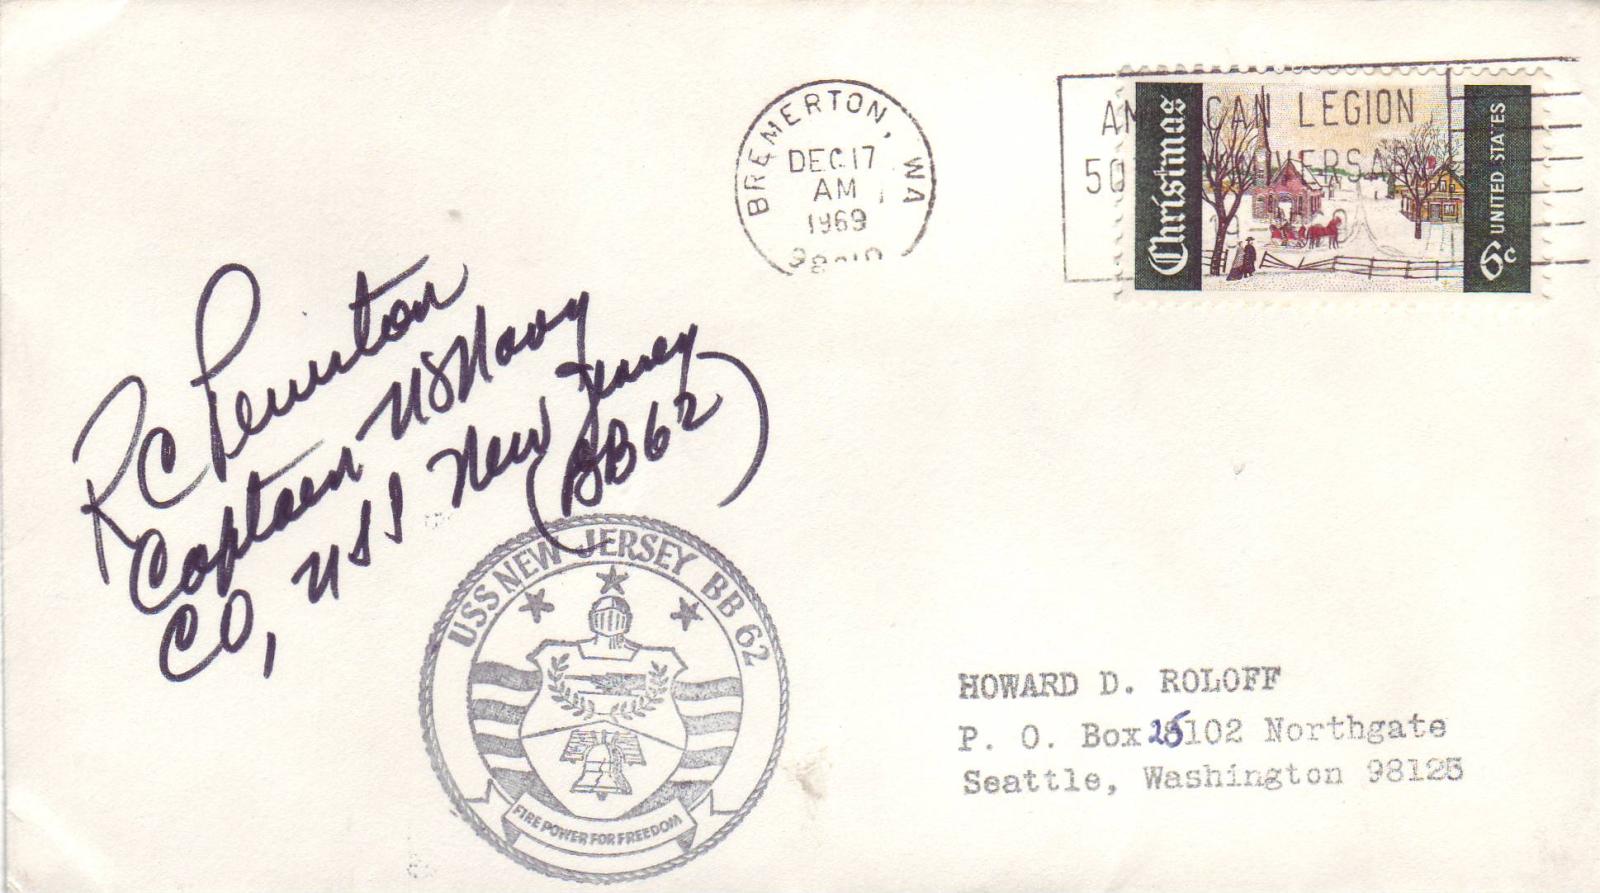 BREMERTON, WA
DEC 17
AM
1969
AMERICAN LEGION
50 ANNIVERSARY
Christmas
UNITED STATES
6c
RC Peniston
Captain US Navy
CO, USS New Jersey
(BB62)
USS NEW JERSEY BB 62
FIRE POWER FOR FREEDOM
HOWARD D. ROLOFF
P. O. Box 25102 Northgate
Seattle, Washington 98125